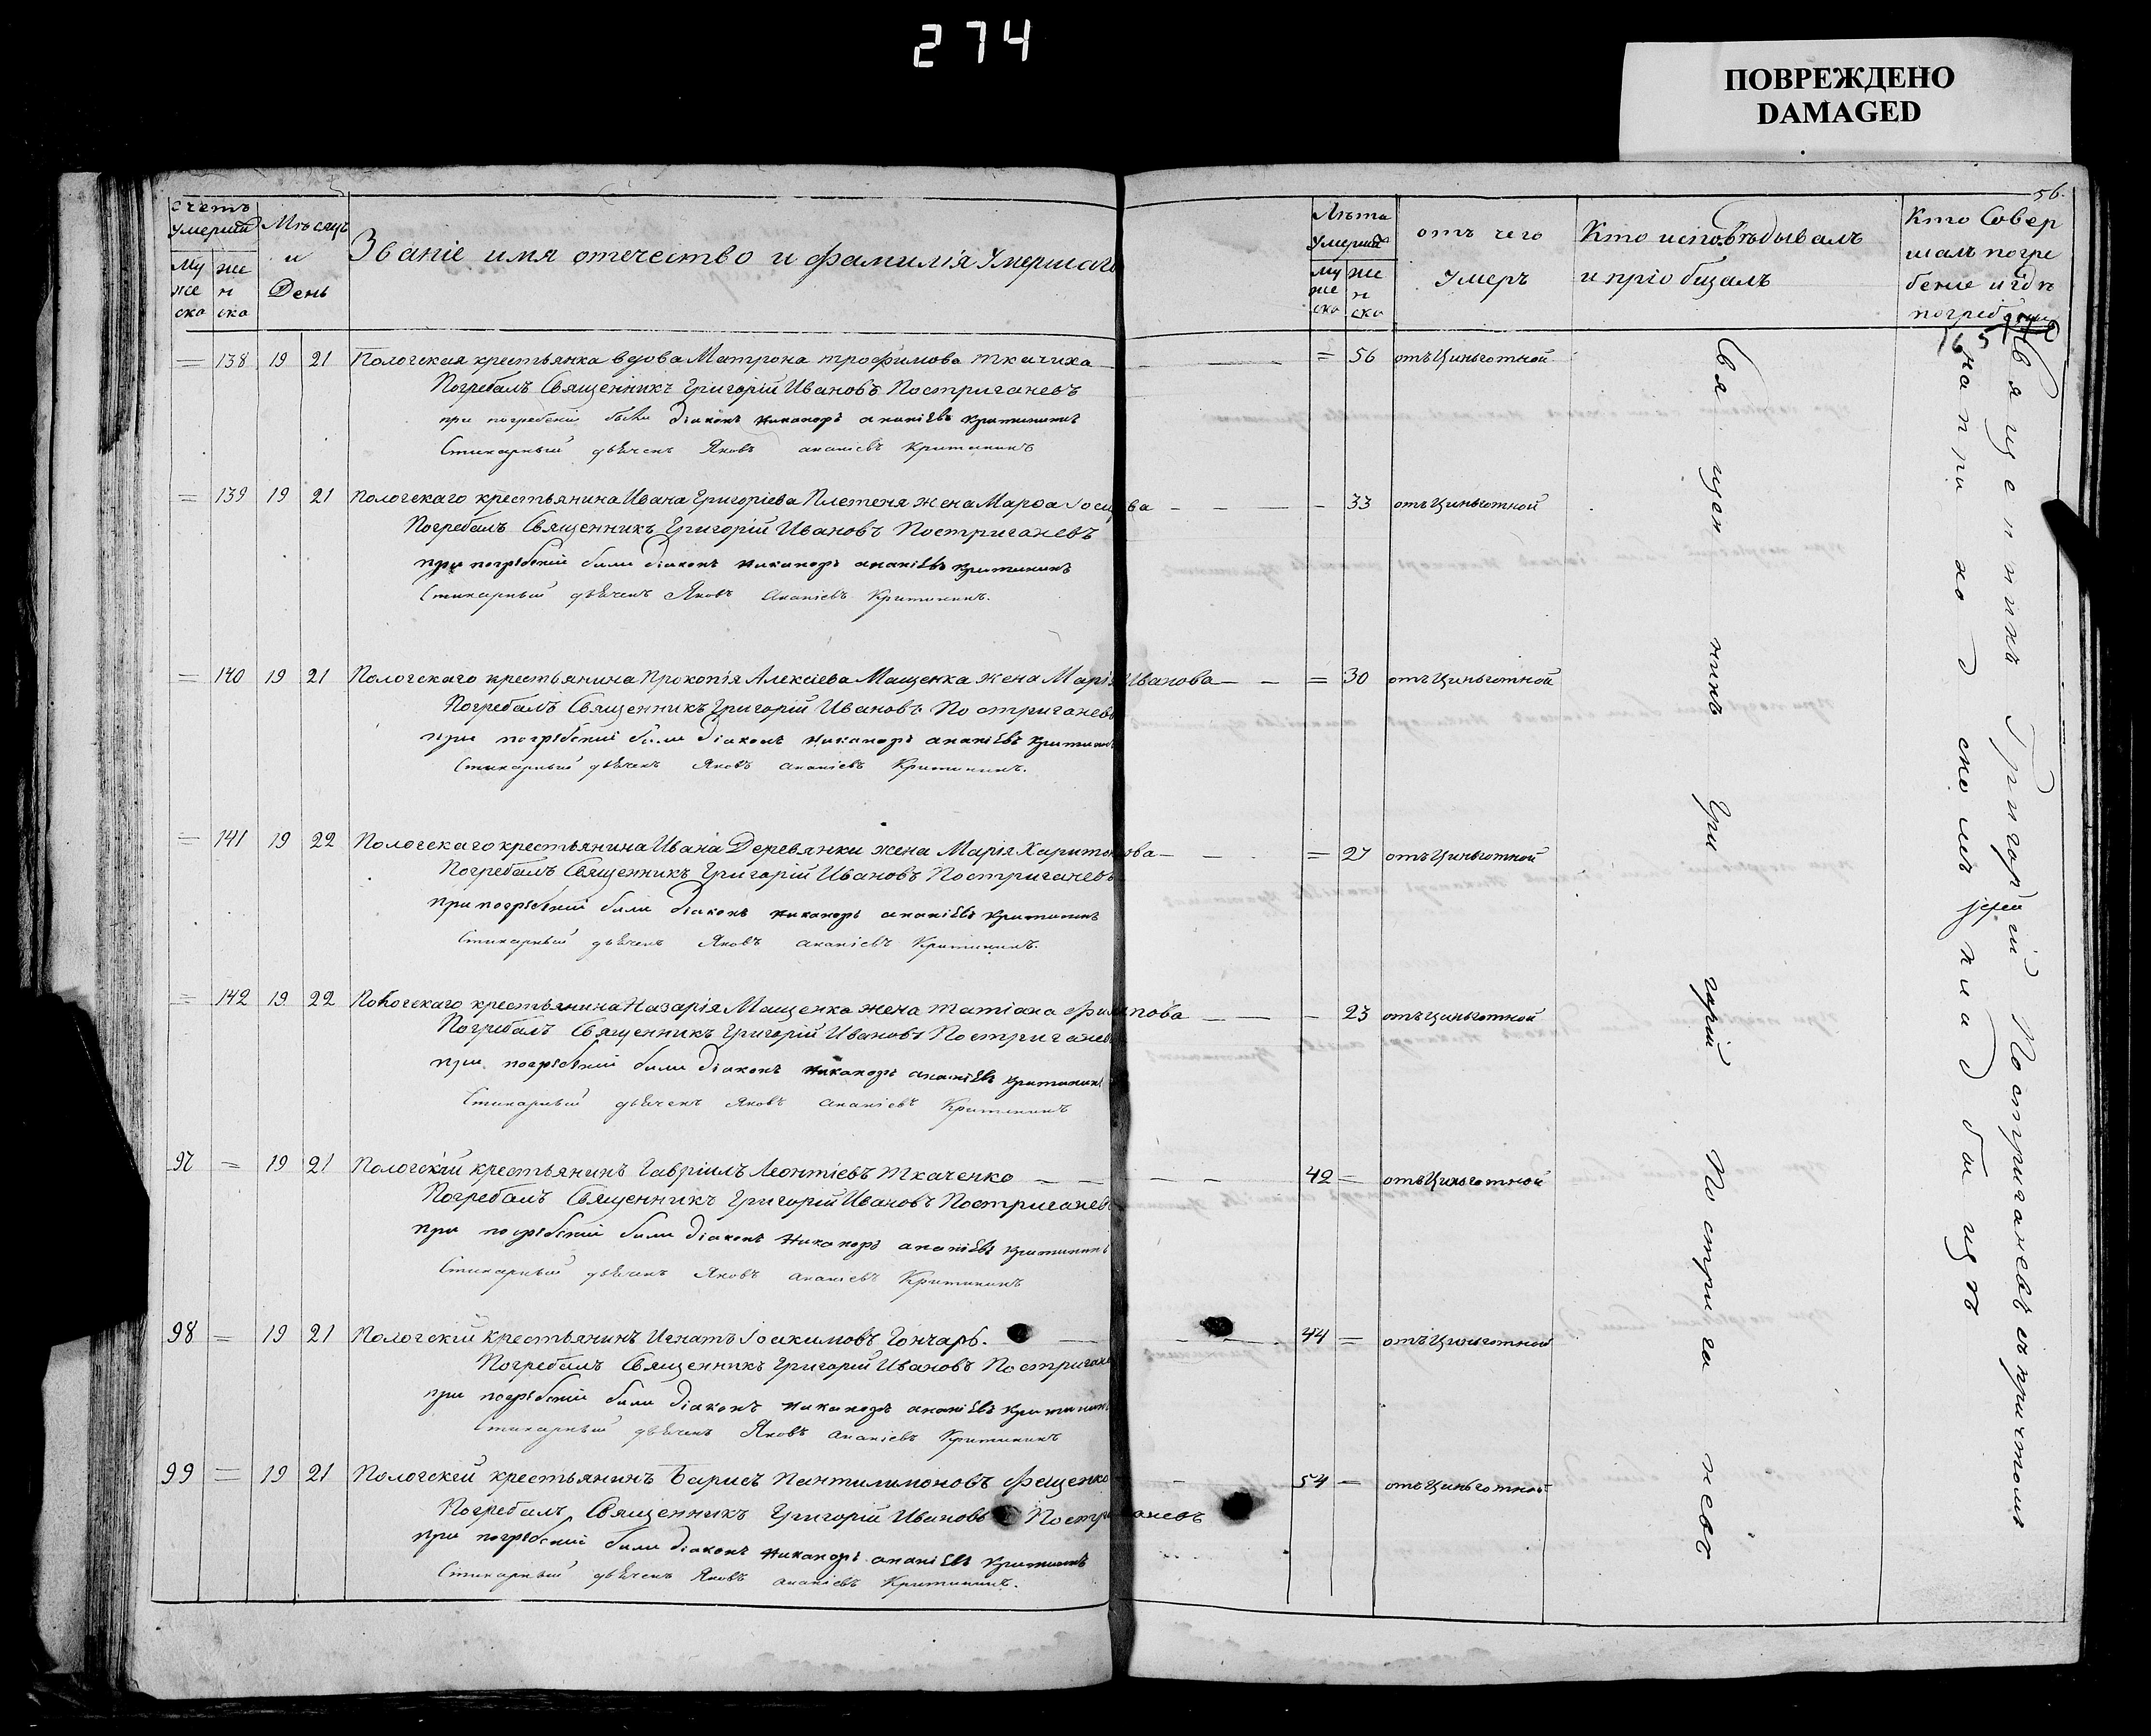 274
ПОВРЕЖДЕНО
DAMAGED
56.
счетъ умерши Мѣсяцъ и День Званіе имя отечество и фамилія Умершаго Лѣта умерши отъ чего Умеръ Кто исповѣдывалъ и пріобщалъ Кто Совершалъ погребеніе и гдѣ погребены
муже ска жен ска муже ска жен ска
= 138 19 21 Пологская крестьянка вдова Матрона трофимова ткачиха = 56 отъ Цынготной
Погребалъ Священникъ Григорій Ивановъ Постриганевъ
при погребеніи были діаконъ Никаноръ ананіевъ Критининъ
Стихарный дьячекъ Яковъ ананіевъ Критининъ
= 139 19 21 Пологскаго крестьянина Ивана Григоріева Плетеня жена Марѳа — 33 отъ Цынготной
Погребалъ Священникъ Григорій Ивановъ Постриганевъ
при погребеніи были діаконъ Никаноръ ананіевъ Критининъ
Стихарный дьячекъ Яковъ Ананіевъ Критининъ.
= 140 19 21 Пологскаго крестьянина Прокопія Алексіева Мащенка жена Марія Иванова = 30 отъ Цынготной
Погребалъ Священникъ Григорій Ивановъ Постриганевъ
при погребеніи были діаконъ Никаноръ ананіевъ Критининъ
Стихарный дьячекъ Яковъ ананіевъ Критининъ.
= 141 19 22 Пологскаго крестьянина Ивана Деревянки жена Марія Харитонова = 27 отъ Цынготной
Погребалъ Священникъ Григорій Ивановъ Постриганевъ
при погребеніи были діаконъ Никаноръ ананіевъ Критининъ
Стихарный дьячекъ Яковъ ананіевъ Критининъ.
= 142 19 22 Пологскаго крестьянина Назарія Мащенка жена татіана Филипова — 23 отъ цынготной
Погребалъ Священникъ Григорій Ивановъ Постриганевъ
при погребеніи были діаконъ Никаноръ ананіевъ Критининъ
Стихарный дьячекъ Яковъ Ананіевъ Критининъ
97 = 19 21 Пологскій крестьянинъ Гавріилъ Леонтіевъ ткаченко 42 = отъ Цынготной
Погребалъ Священникъ Григорій Ивановъ Постриганевъ
при погребеніи были діаконъ Никаноръ ананіевъ Критининъ
Стихарный дьячекъ Яковъ ананіевъ Критининъ
98 = 19 21 Пологскій крестьянинъ Игнатъ Іоакимовъ Гончаръ. 44 = отъ Цынготной
Погребалъ Священникъ Григорій Ивановъ Постриганевъ
при погребеніи были діаконъ Никаноръ ананіевъ Критининъ
Стихарный дьячекъ Яковъ Ананіевъ Критининъ
99 = 19 21 Пологскій крестьянинъ Барисъ Пантилимоновъ Фещенко 54 — отъ Цынготной
Погребалъ Священникъ Григорій Ивановъ Постриганевъ
при погребеніи были діаконъ Никаноръ ананіевъ Критининъ
Стихарный дьячекъ Яковъ ананіевъ Критининъ.
Священникъ Григорій Постриганевъ
Священникъ Григорій Постриганевъ съ причтомъ
на приходскомъ кладбищѣ